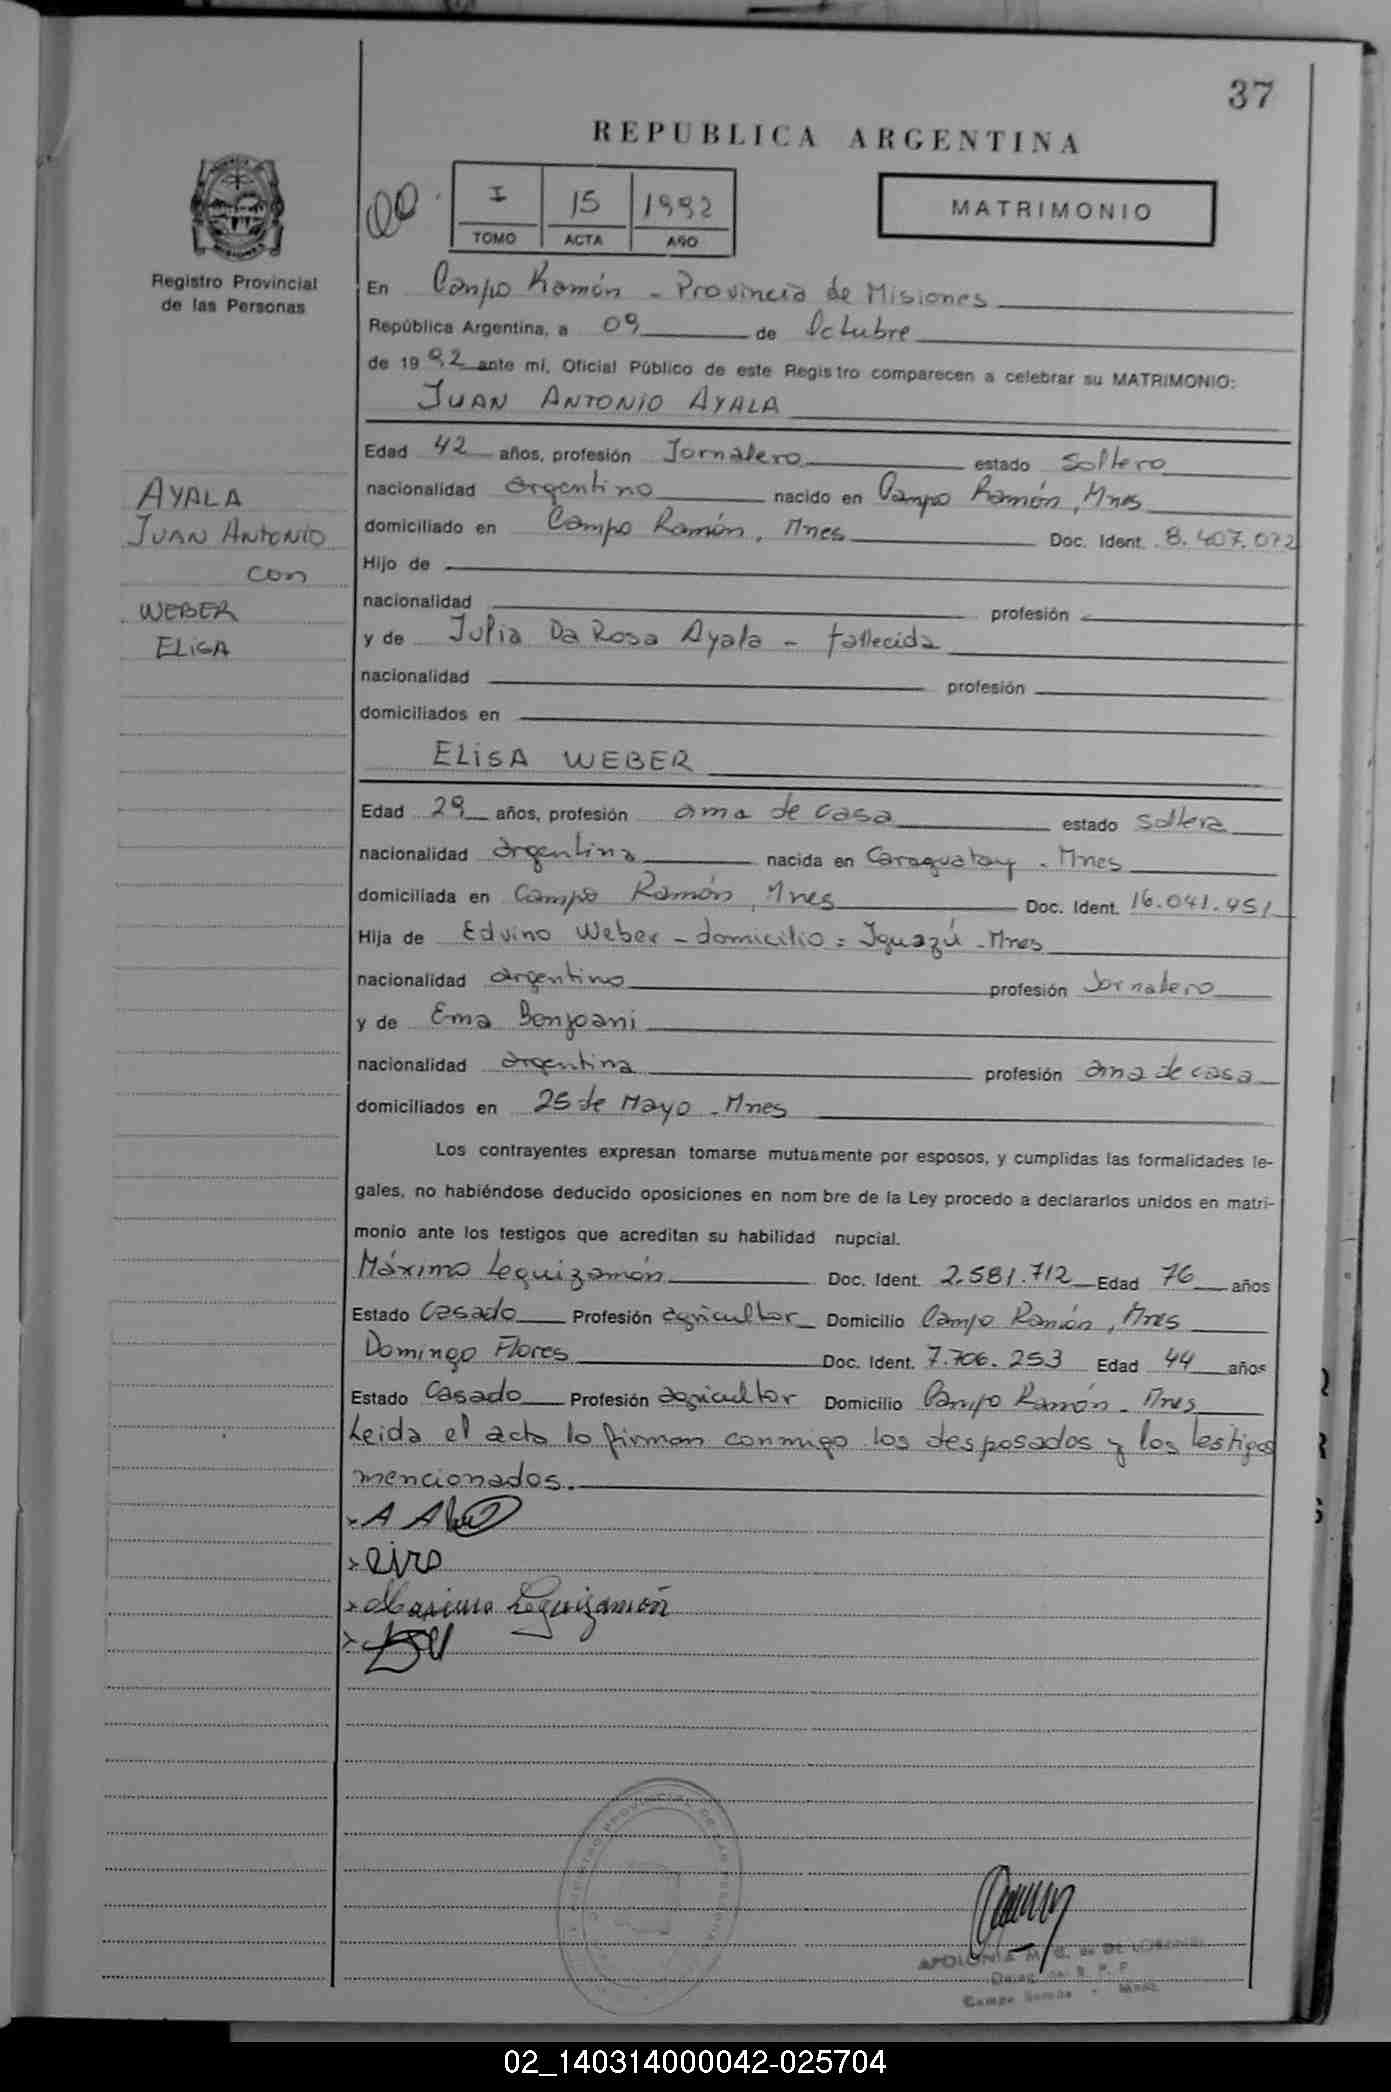 37
REPUBLICA ARGENTINA
I 15 1992
TOMO ACTA AÑO
MATRIMONIO
Registro Provincial
de las Personas
En Campo Ramón - Provincia de Misiones
República Argentina, a 09 de Octubre
de 1992 ante mí, Oficial Público de este Registro comparecen a celebrar su MATRIMONIO:
JUAN ANTONIO AYALA
Edad 42 años, profesión Jornalero estado Soltero
nacionalidad argentino nacido en Campo Ramón, Mnes
domiciliado en Campo Ramón, Mnes Doc. Ident. 8.407.072
Hijo de
nacionalidad profesión
y de Julia Da Rosa Ayala - fallecida
nacionalidad profesión
domiciliados en
AYALA
JUAN ANTONIO
con
WEBER
ELISA
ELISA WEBER
Edad 29 años, profesión ama de casa estado Soltera
nacionalidad argentina nacida en Caraguatay - Mnes
domiciliada en Campo Ramón, Mnes Doc. Ident. 16.041.951
Hija de Edvino Weber - domicilio: Iguazú - Mnes
nacionalidad argentino profesión Jornalero
y de Ema Bonjoani
nacionalidad argentina profesión ama de casa
domiciliados en 25 de Mayo - Mnes
Los contrayentes expresan tomarse mutuamente por esposos, y cumplidas las formalidades le-
gales, no habiéndose deducido oposiciones en nombre de la Ley procedo a declararlos unidos en matri-
monio ante los testigos que acreditan su habilidad nupcial.
Máximo Leguizamón Doc. Ident. 2.581.712 Edad 76 años
Estado Casado Profesión agricultor Domicilio Campo Ramón, Mnes
Domingo Flores Doc. Ident. 7.706.253 Edad 44 años
Estado Casado Profesión agricultor Domicilio Campo Ramón - Mnes
Leida el acta lo firman conmigo los desposados y los testigos
mencionados.
Maximo Leguizamón
APOLONIA M. G. de DE
Campo Ramón - Mnes.
02_140314000042-025704